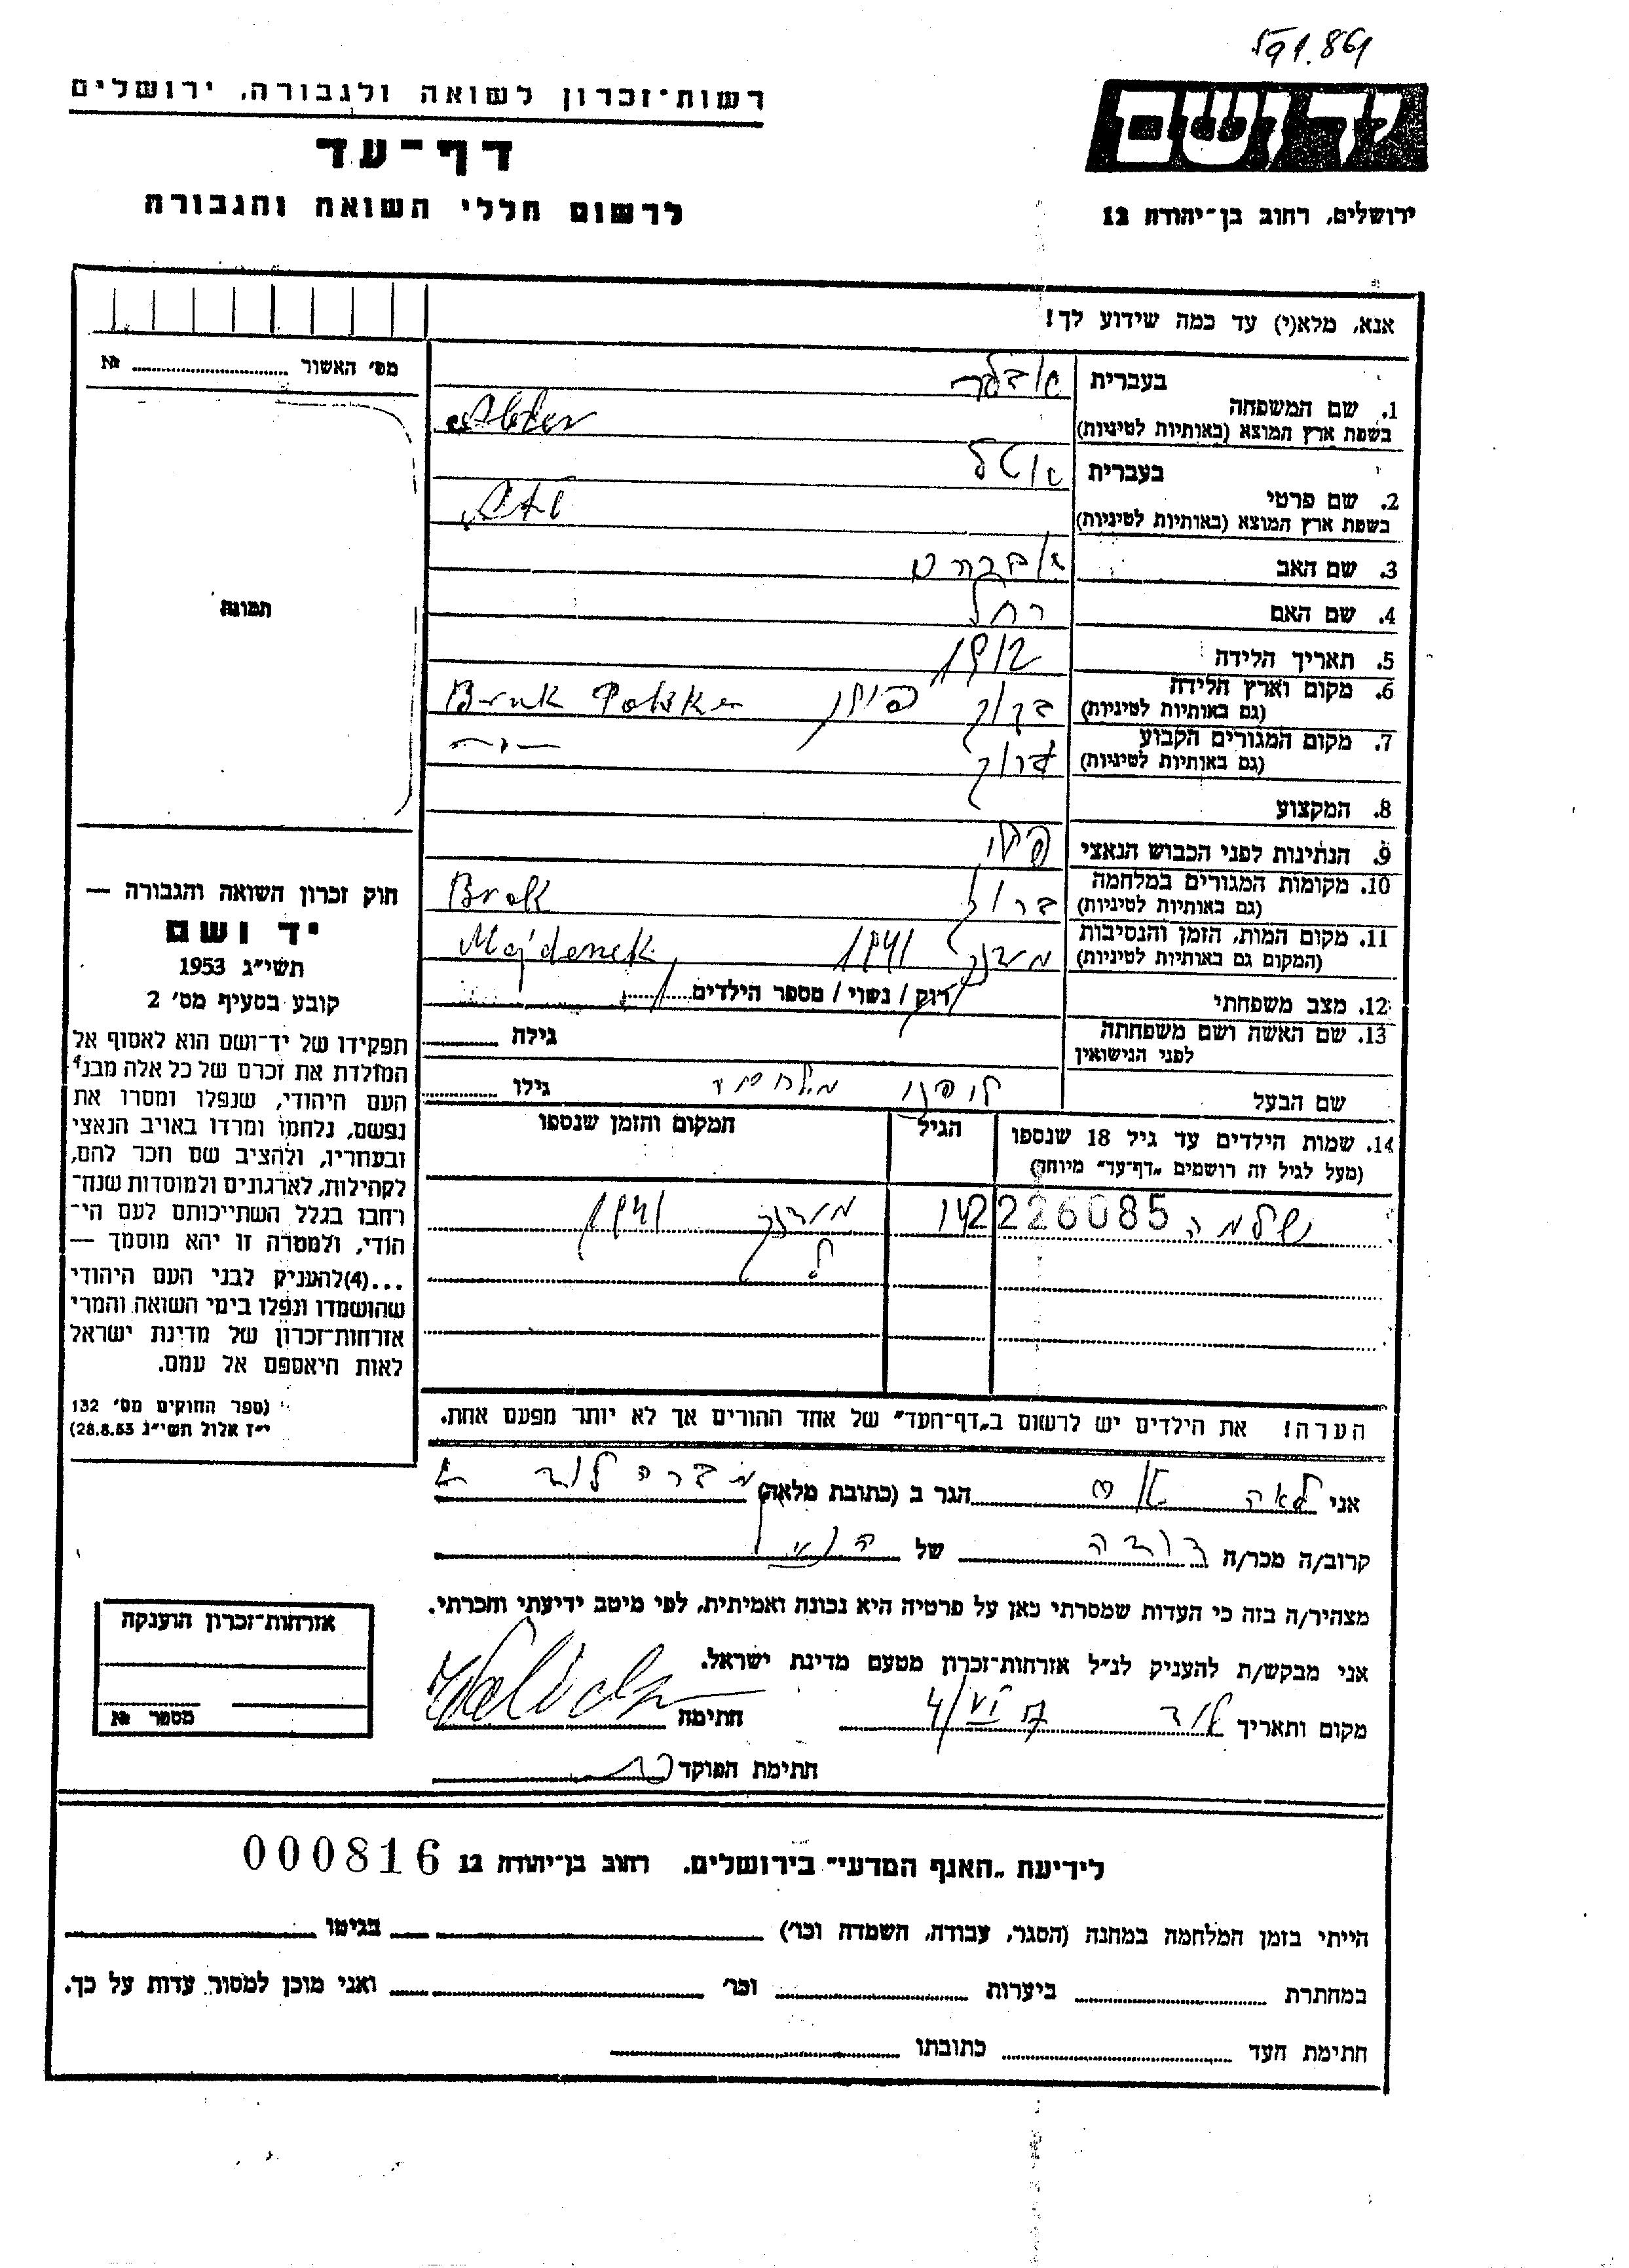 רשות-זכרון לשואה ולגבורה, ירושלים
דף-עד
לרשום חללי השואה והגבורה
יד ושם
ירושלים, רחוב בן-יהודה 12
אנא, מלא(י) עד כמה שידוע לך!
מס' האשור № 
תמונה
1. שם המשפחה
בעברית אדלר
בשפת ארץ המוצא (באותיות לטיניות)
2. שם פרטי
בעברית
בשפת ארץ המוצא (באותיות לטיניות)
3. שם האב אברהם
4. שם האם רחל
5. תאריך הלידה
6. מקום וארץ הלידה
(גם באותיות לטיניות) ברוק פולין
7. מקום המגורים הקבוע
(גם באותיות לטיניות) ברוק
8. המקצוע
9. הנתינות לפני הכבוש הנאצי
10. מקומות המגורים במלחמה
(גם באותיות לטיניות) ברוק Brok
11. מקום המות, הזמן והנסיבות
(המקום גם באותיות לטיניות) 1941 Majdenek
12. מצב משפחתי רווק / נשוי / מספר הילדים
13. שם האשה ושם משפחתה
לפני הנישואין גילה
שם הבעל גילו
14. שמות הילדים עד גיל 18 שנספו
(מעל לגיל זה רושמים "דף-עד" מיוחד)
הגיל
המקום והזמן שנספו
שלמה 226085 1941
הערה! את הילדים יש לרשום ב"דף-העד" של אחד ההורים אך לא יותר מפעם אחת.
חוק זכרון השואה והגבורה —
יד ושם
תשי"ג 1953
קובע בסעיף מס' 2
תפקידו של יד-ושם הוא לאסוף אל
המולדת את זכרם של כל אלה מבני
העם היהודי, שנפלו ומסרו את
נפשם, נלחמו ומרדו באויב הנאצי
ובעוזריו, ולהציב שם וזכר להם,
לקהילות, לארגונים ולמוסדות שנח-
רבו בגלל השתייכותם לעם הי-
הודי, ולמטרה זו יהא מוסמך —
...(4) להעניק לבני העם היהודי
שהושמדו ונפלו בימי השואה והמרי
אזרחות-זכרון של מדינת ישראל
לאות היאספם אל עמם.
(ספר החוקים מס' 132
י"ז אלול תשי"ג 28.8.53)
אני לאה הגר ב (כתובת מלאה)
קרוב/ה מכר/ה דודה של
מצהיר/ה בזה כי העדות שמסרתי כאן על פרטיה היא נכונה ואמיתית, לפי מיטב ידיעתי והכרתי.
אני מבקש/ת להעניק לנ"ל אזרחות-זכרון מטעם מדינת ישראל.
מקום ותאריך לוד חתימה
חתימת הפוקד
אזרחות-זכרון הוענקה
מספר №
לידיעת "האגף המדעי" בירושלים. רחוב בן-יהודה 12 000816
הייתי בזמן המלחמה במחנה (הסגר, עבודה, השמדה וכו') בגיטו
במחתרת ביערות וכו' ואני מוכן למסור עדות על כך.
חתימת העד כתובתו